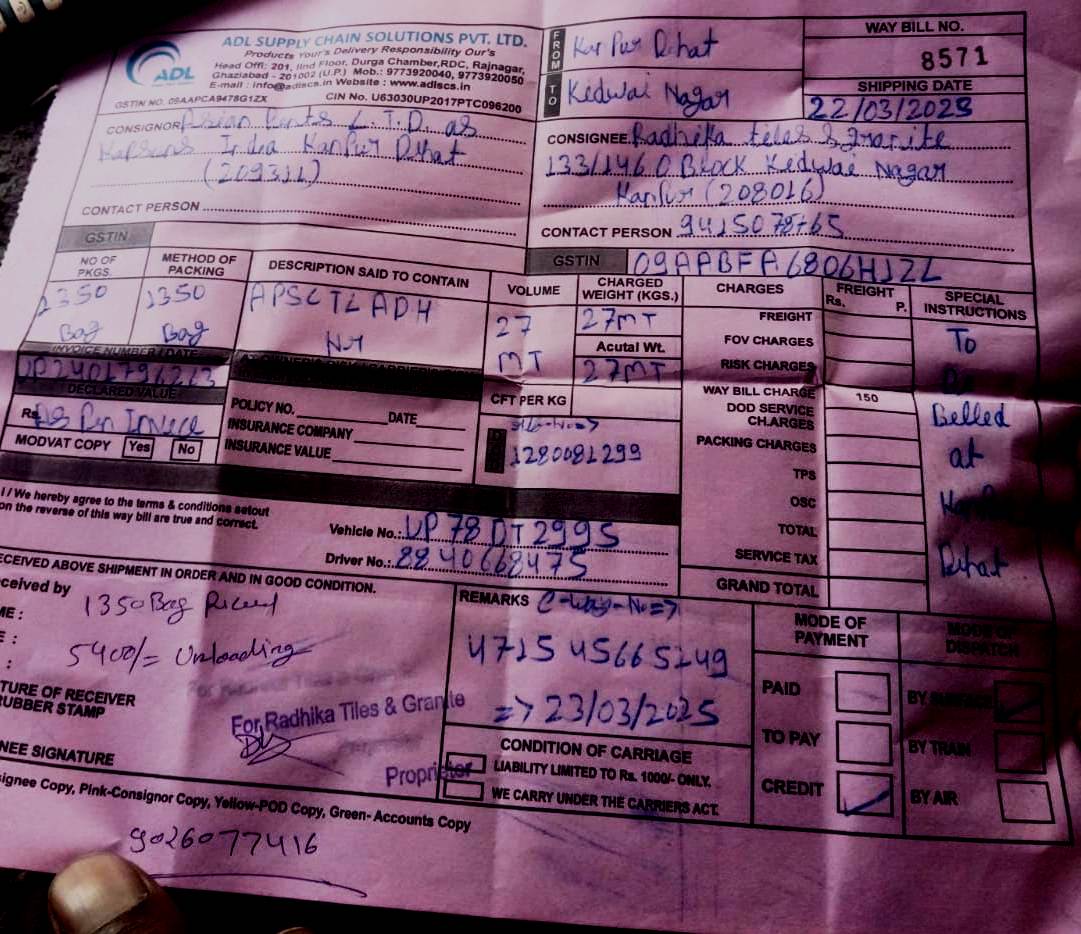 ADL
ADL SUPPLY CHAIN SOLUTIONS PVT. LTD.
Products Your's Delivery Responsibility Our's
Head Offi: 201, IInd Floor, Durga Chamber,RDC, Rajnagar,
Ghaziabad - 201002 (U.P.) Mob.: 9773920040, 9773920050
E-mail : info@adlscs.in Website : www.adlscs.in
GSTIN NO. 09AAPCA9478G1ZX CIN No. U63030UP2017PTC096200
FROM Kanpur Dehat
TO Kedwai Nagar
WAY BILL NO.
8571
SHIPPING DATE
22/03/2025
CONSIGNOR Asian Pents L.T.D. as
India Kanpur Dehat
CONTACT PERSON
CONSIGNEE Radhika telas & granite
133/146 O Block Kedwai Nagar
Kanpur (208016)
CONTACT PERSON
GSTIN
GSTIN 09AABFA6806H1ZL
NO OF PKGS.
METHOD OF PACKING
DESCRIPTION SAID TO CONTAIN
VOLUME
CHARGED WEIGHT (KGS.)
CHARGES
FREIGHT
Rs. P.
SPECIAL INSTRUCTIONS
1350 Bag
1350 Bag
APSCTLADH
27 MT
27MT
Acutal Wt.
27MT
CFT PER KG
INVOICE NUMBER / DATE
DECLARED VALUE
Rs. As Per Invece
MODVAT COPY Yes No
POLICY NO. DATE
INSURANCE COMPANY
INSURANCE VALUE
1280081299
FREIGHT
FOV CHARGES
RISK CHARGES
WAY BILL CHARGE 150
DOD SERVICE CHARGES
PACKING CHARGES
TPS
OSC
TOTAL
SERVICE TAX
GRAND TOTAL
To
Be
Belled
at
Dehat
I / We hereby agree to the terms & conditions setout
on the reverse of this way bill are true and correct.
Vehicle No.: UP 78 DT 2995
Driver No.: 8840668475
RECEIVED ABOVE SHIPMENT IN ORDER AND IN GOOD CONDITION.
1350 Bag
5400/= Unloading
For Radhika Tiles & Granite
Proprietor
REMARKS E-Way-No=>
=> 23/03/2025
CONDITION OF CARRIAGE
LIABILITY LIMITED TO Rs. 1000/- ONLY.
WE CARRY UNDER THE CARRIERS ACT.
MODE OF PAYMENT
PAID
TO PAY
CREDIT
MODE OF DISPATCH
BY SURFACE
BY TRAIN
BY AIR
TURE OF RECEIVER
RUBBER STAMP
NEE SIGNATURE
signee Copy, Pink-Consignor Copy, Yellow-POD Copy, Green- Accounts Copy
9026077416